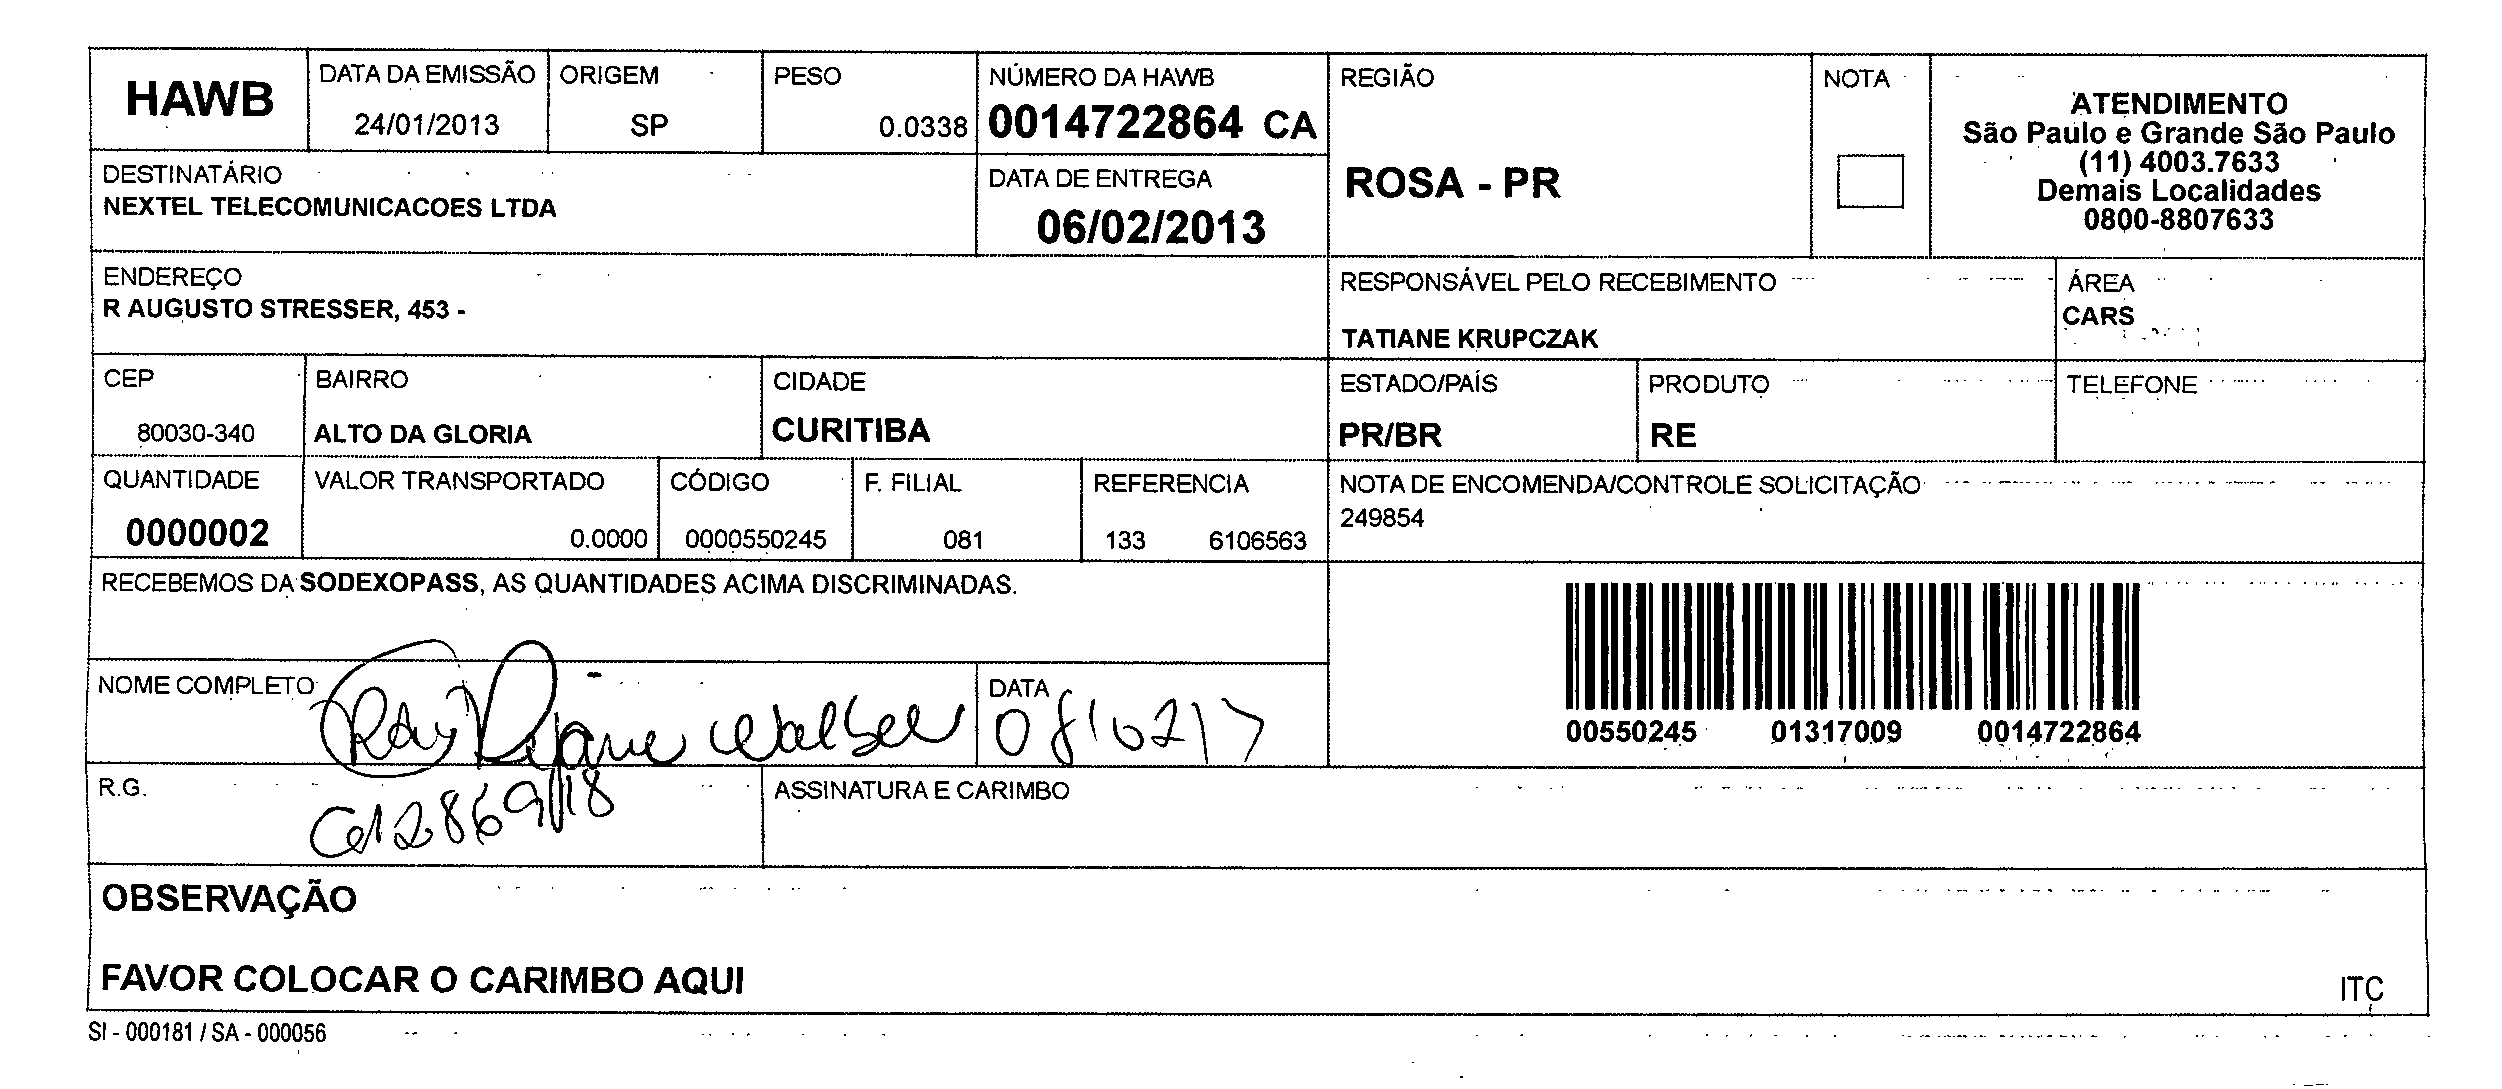 HAWB
DATA DA EMISSÃO
24/01/2013
ORIGEM
SP
PESO
0.0338
NÚMERO DA HAWB
0014722864 CA
REGIÃO
ROSA - PR
NOTA
ATENDIMENTO
São Paulo e Grande São Paulo
(11) 4003.7633
Demais Localidades
0800-8807633
DESTINATÁRIO
NEXTEL TELECOMUNICACOES LTDA
DATA DE ENTREGA
06/02/2013
ENDEREÇO
R AUGUSTO STRESSER, 453 -
RESPONSÁVEL PELO RECEBIMENTO
TATIANE KRUPCZAK
ÁREA
CARS
CEP
80030-340
BAIRRO
ALTO DA GLORIA
CIDADE
CURITIBA
ESTADO/PAÍS
PR/BR
PRODUTO
RE
TELEFONE
QUANTIDADE
0000002
VALOR TRANSPORTADO
0.0000
CÓDIGO
0000550245
F. FILIAL
081
REFERENCIA
133 6106563
NOTA DE ENCOMENDA/CONTROLE SOLICITAÇÃO
249854
RECEBEMOS DA SODEXOPASS, AS QUANTIDADES ACIMA DISCRIMINADAS.
00550245 01317009 0014722864
NOME COMPLETO
DATA
R.G.
ASSINATURA E CARIMBO
OBSERVAÇÃO
FAVOR COLOCAR O CARIMBO AQUI
ITC
SI - 000181 / SA - 000056